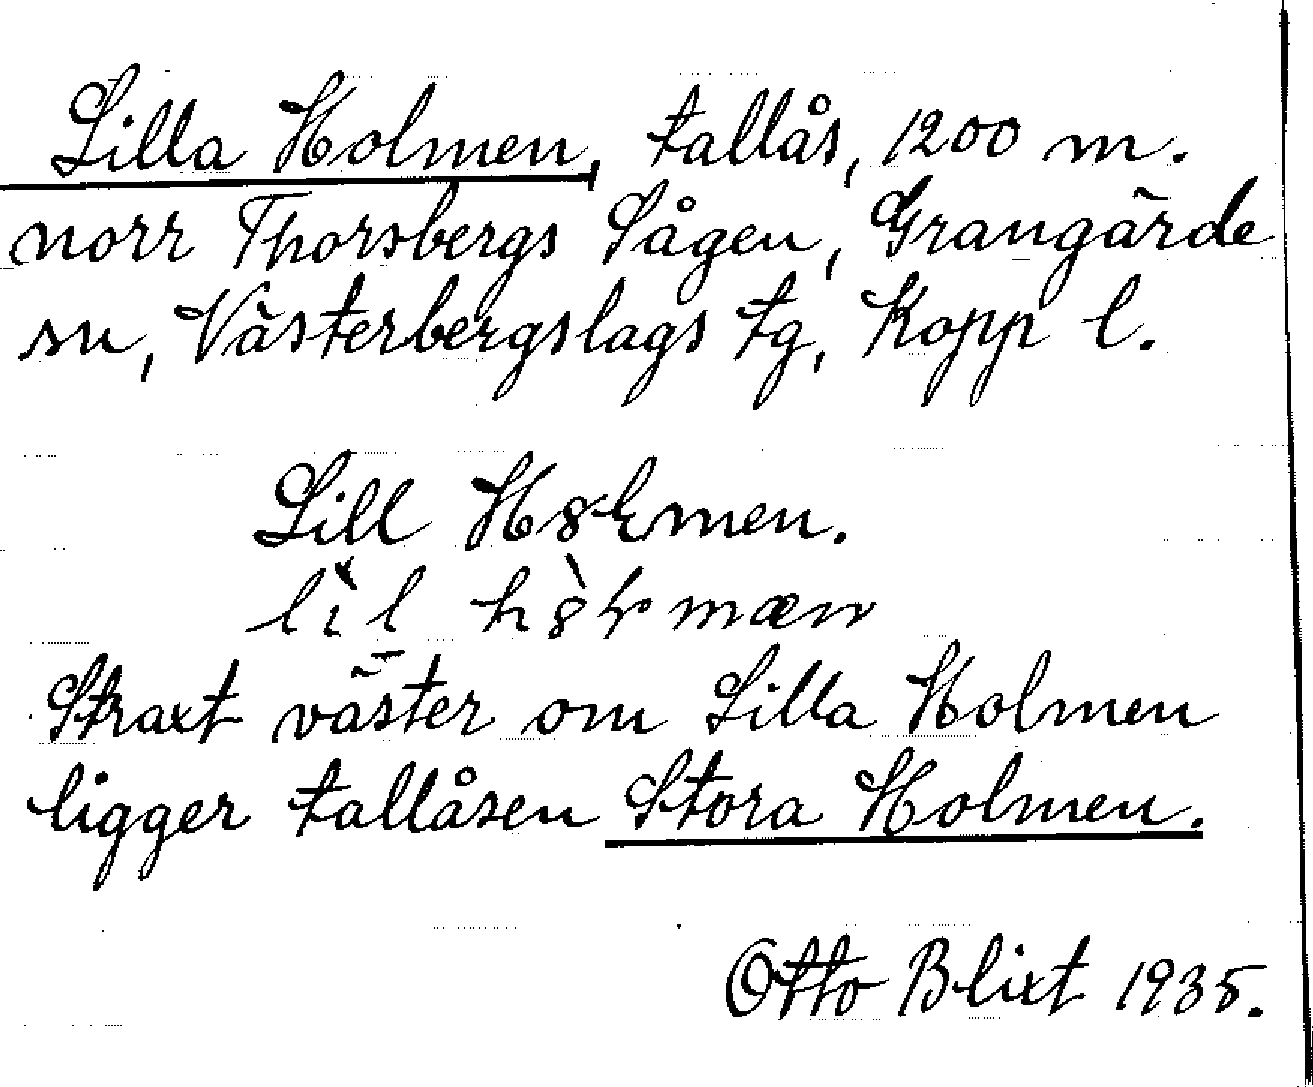 Lilla Holmen, tallås, 1200 m.
norr Thorsbergs Sågen, Grangärde
sn, Västerbergslags tg, Kopp l.
Lill
Straxt väster om Lilla Holmen
ligger tallåsen Stora Holmen.
Otto Blixt 1935.